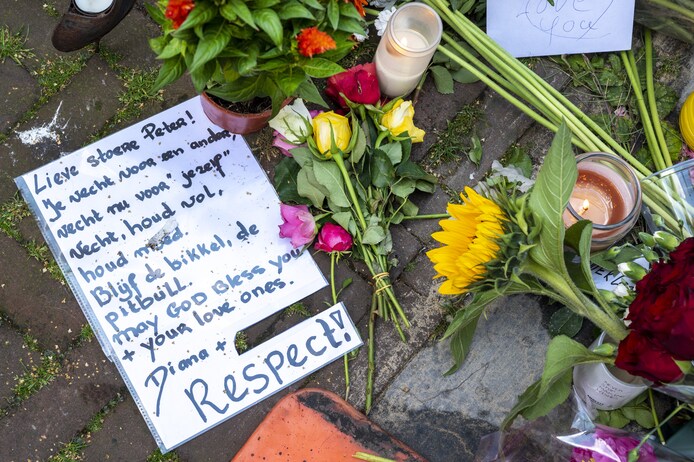 Lieve stoere Peter!
Je vecht voor een ander,
vecht nu voor "jezelf"
Vecht, houd vol,
houd moed
Blijf de bikkel, de
pitbull.
may GOD Bless you
+ your love ones.
Diana +
Respect!
love
you